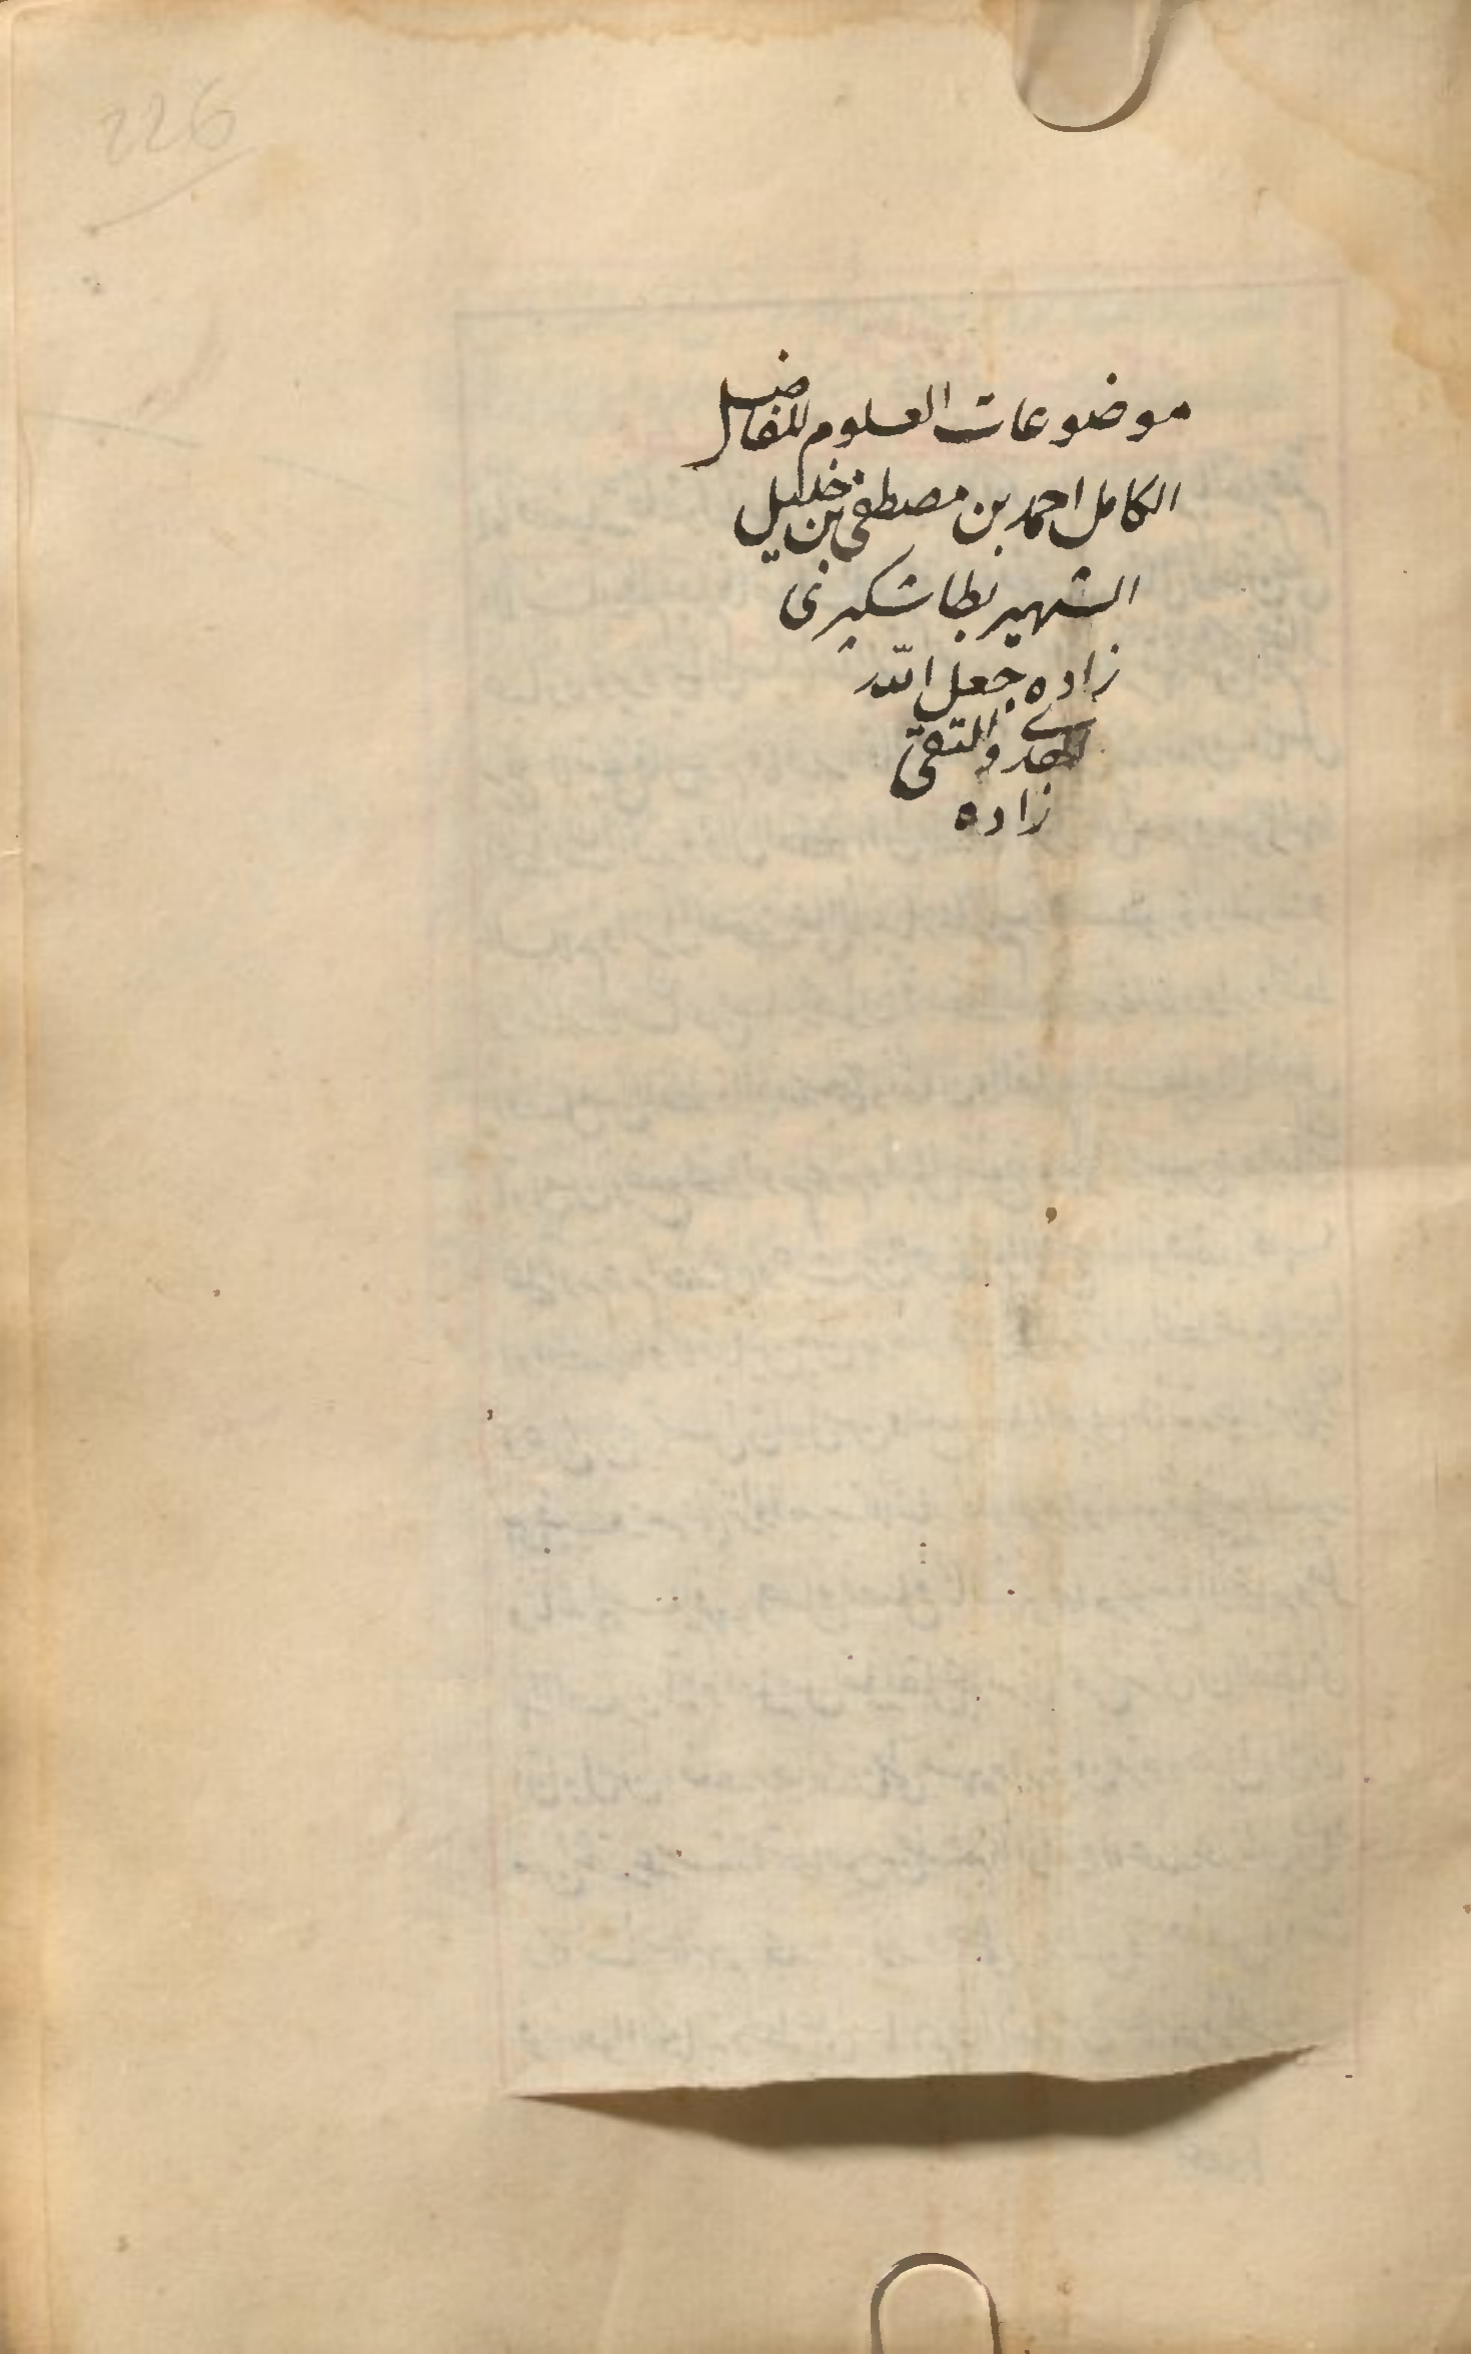 226
موضوعات العلوم للفاضل
الكامل احمد بن مصطفى بن خليل
الشهير بطاشكبرى
زاده جعل الله
الهدى والتقى
زاده